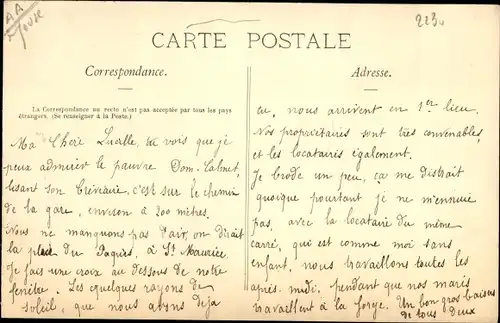 AA
223
CARTE POSTALE
Correspondance.
La Correspondance au recto n'est pas acceptée par tous les pays
étrangers. (Se renseigner à la Poste.)
Ma Chère Lucelle, tu vois que je
peux admirer le pauvre Dom. Calmet,
lisant son bréviaire. c'est sur le chemin
de la gare, environ à 200 mètres.
Nous ne manquons pas d'air, on dirait
la place du à St Maurice.
Je fais une croix au dessous de notre
fenêtre. Les quelques rayons de
soleil, que nous avons déja
Adresse.
eu, nous arrivent en 1er lieu.
Nos propriétaires sont très convenables,
et les locataires également.
Je brode un peu, ça me distrait
quoique pourtant je ne m'ennuie
pas. avec la locataire du même
carré, qui est comme moi sans
enfant, nous travaillons toutes les
après-midi. pendant que nos maris
travaillent à la forge. Un bon gros baiser
de tous deux